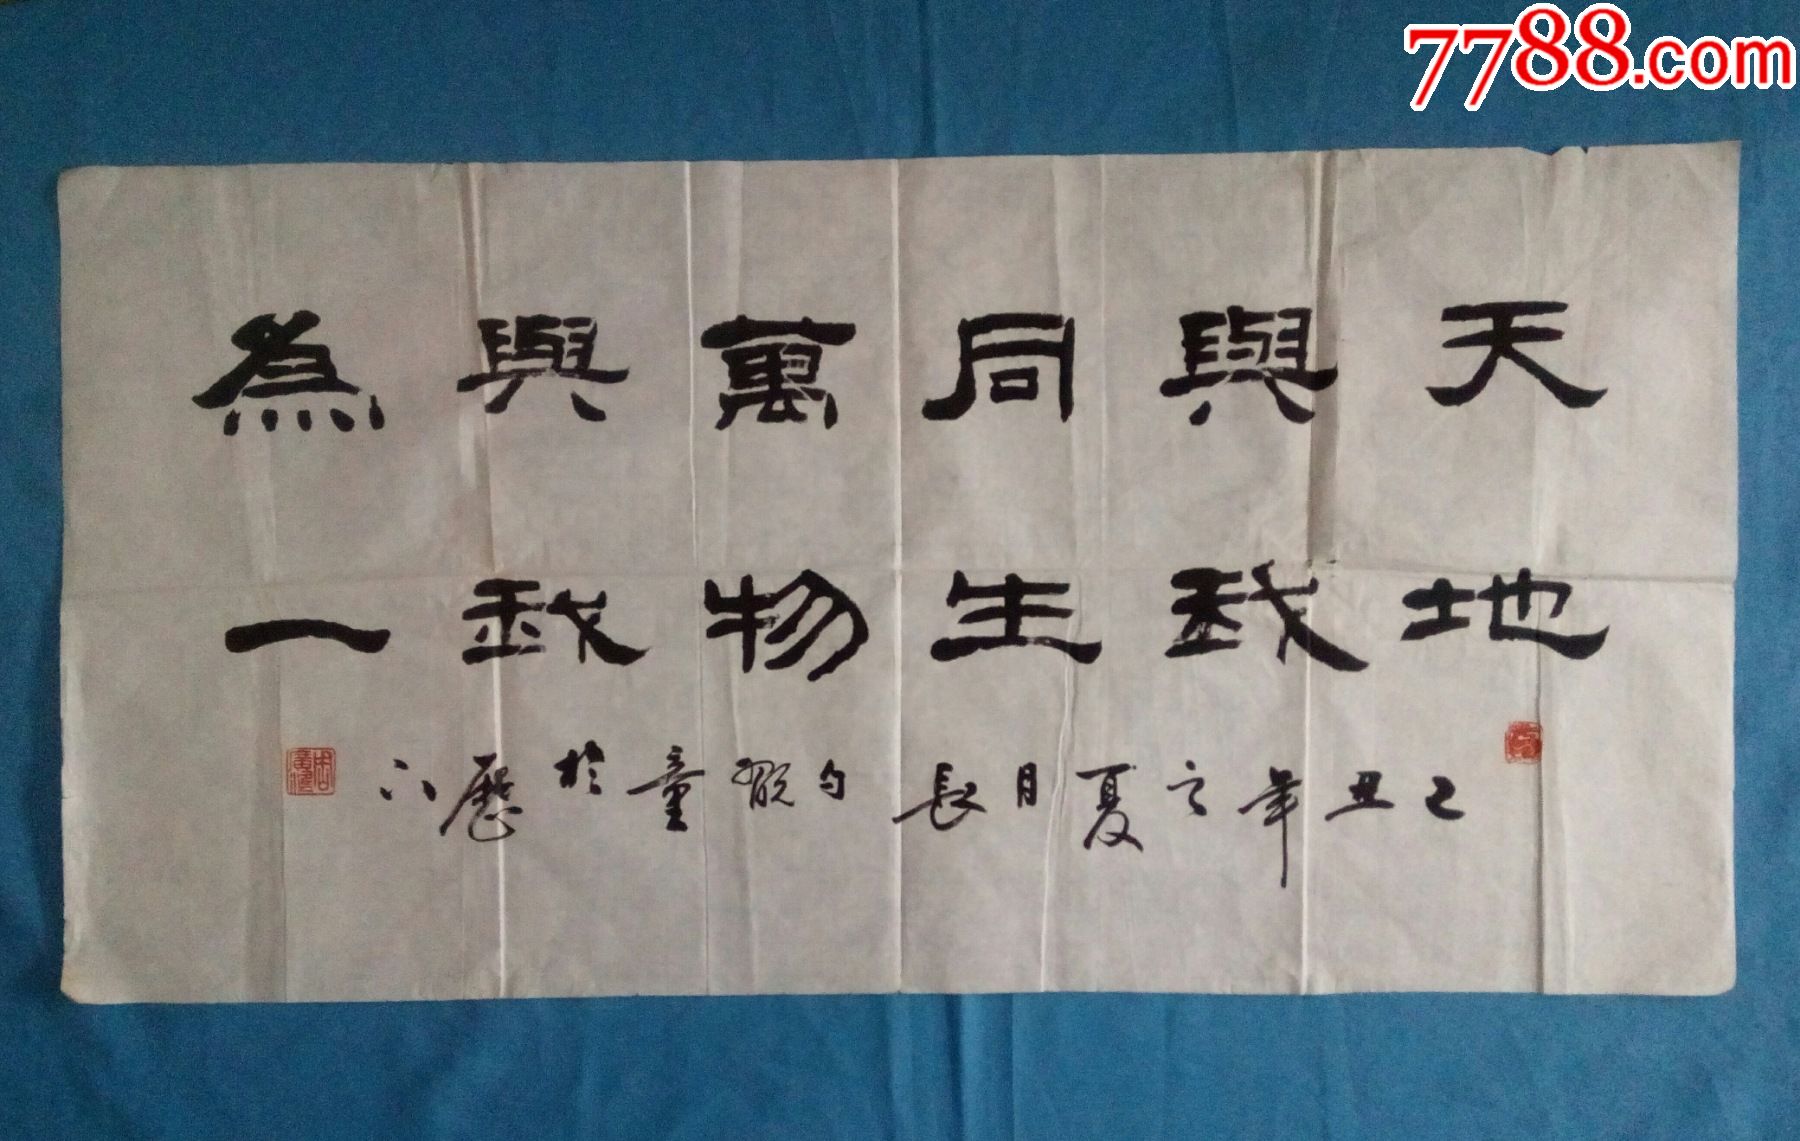 天地
與我
同生
萬物
與我
為一
己丑年之夏月長勺童於歷下
7788.com